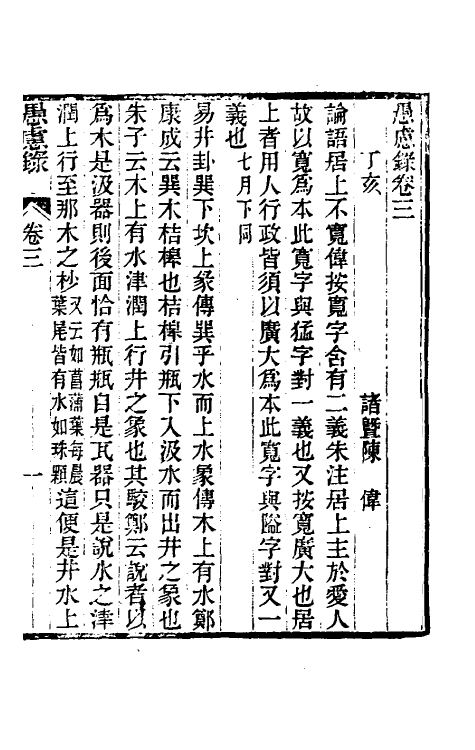 愚慮錄卷三
丁亥　諸曁陳　偉
論語居上不寬偉按寬字含有二義朱注居上主於愛人
故以寬爲本此寬字與猛字對一義也又按寬廣大也居
上者用人行政皆須以廣大爲本此寬字與隘字對又一
義也七月下同
易井卦巽下坎上彖傳巽乎水而上水象傳木上有水鄭
康成云巽木桔槔也桔槔引瓶下入汲水而出井之象也
朱子云木上有水津潤上行井之象也其駮鄭云說者以
爲木是汲器則後面恰有瓶瓶自是瓦器只是說水之津
潤上行至那木之杪又云如菖蒲葉每晨葉尾皆有水如珠顆這便是井水上
愚慮錄　卷三　一